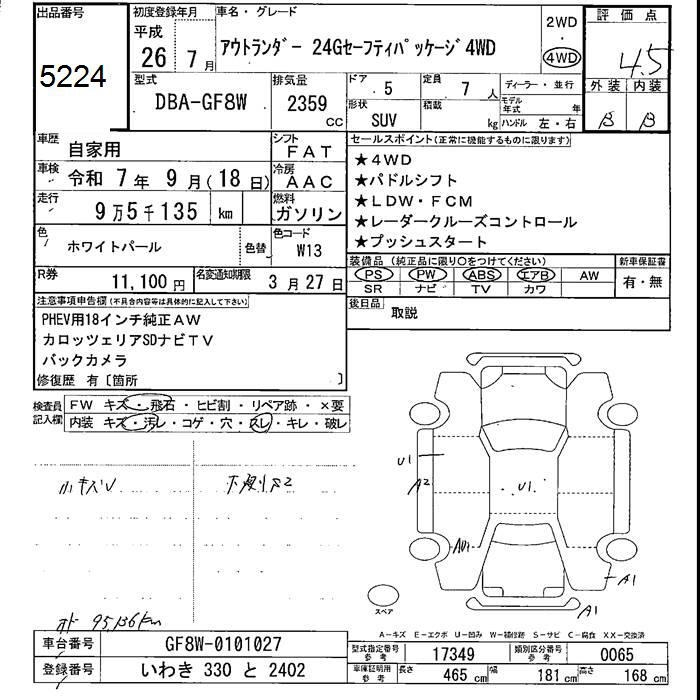 出品番号
5224
初度登録年月
平成
26年 7月
車名・グレード
アウトランダー 24Gセーフティパッケージ 4WD
2WD
・
4WD
評価点
4.5
外装 内装
B B
型式
DBA-GF8W
排気量
2359
CC
ドア
5
定員
7 人
形状
SUV
積載
kg
ディーラー・並行
モデル年式 年
ハンドル 左・右
車歴
自家用
シフト
FAT
車検
令和 7年 9月(18日)
冷房
AAC
走行
9万5千135 km
燃料
ガソリン
色
ホワイトパール
色替
色コード
W13
R券
11,100円
名変通知期限
3月27日
セールスポイント(正常に機能するものに限ります)
★4WD
★パドルシフト
★LDW・FCM
★レーダークルーズコントロール
★プッシュスタート
装備品(純正品に限り○をつけてください)
PS PW ABS エアB AW
SR ナビ TV カワ
新車保証書
有・無
後日品
取説
注意事項申告欄(不具合内容等は具体的に記入して下さい)
PHEV用18インチ純正AW
カロッツェリアSDナビTV
バックカメラ
修復歴 有〔箇所 〕
検査員記入欄
FW キズ・飛石・ヒビ割・リペア跡・×要
内装 キズ・汚レ・コゲ・穴・スレ・キレ・破レ
小キズU
下廻りS2
オド 95136km
U1
A2
U1
A1
A1
スペア
A-キズ E-エクボ U-凹み W-補修跡 S-サビ C-腐食 XX-交換済
車台番号
GF8W-0101027
登録番号
いわき 330 と 2402
型式指定番号参考
17349
類別区分番号参考
0065
車庫証明用参考
長さ 465 cm
幅 181 cm
高さ 168 cm